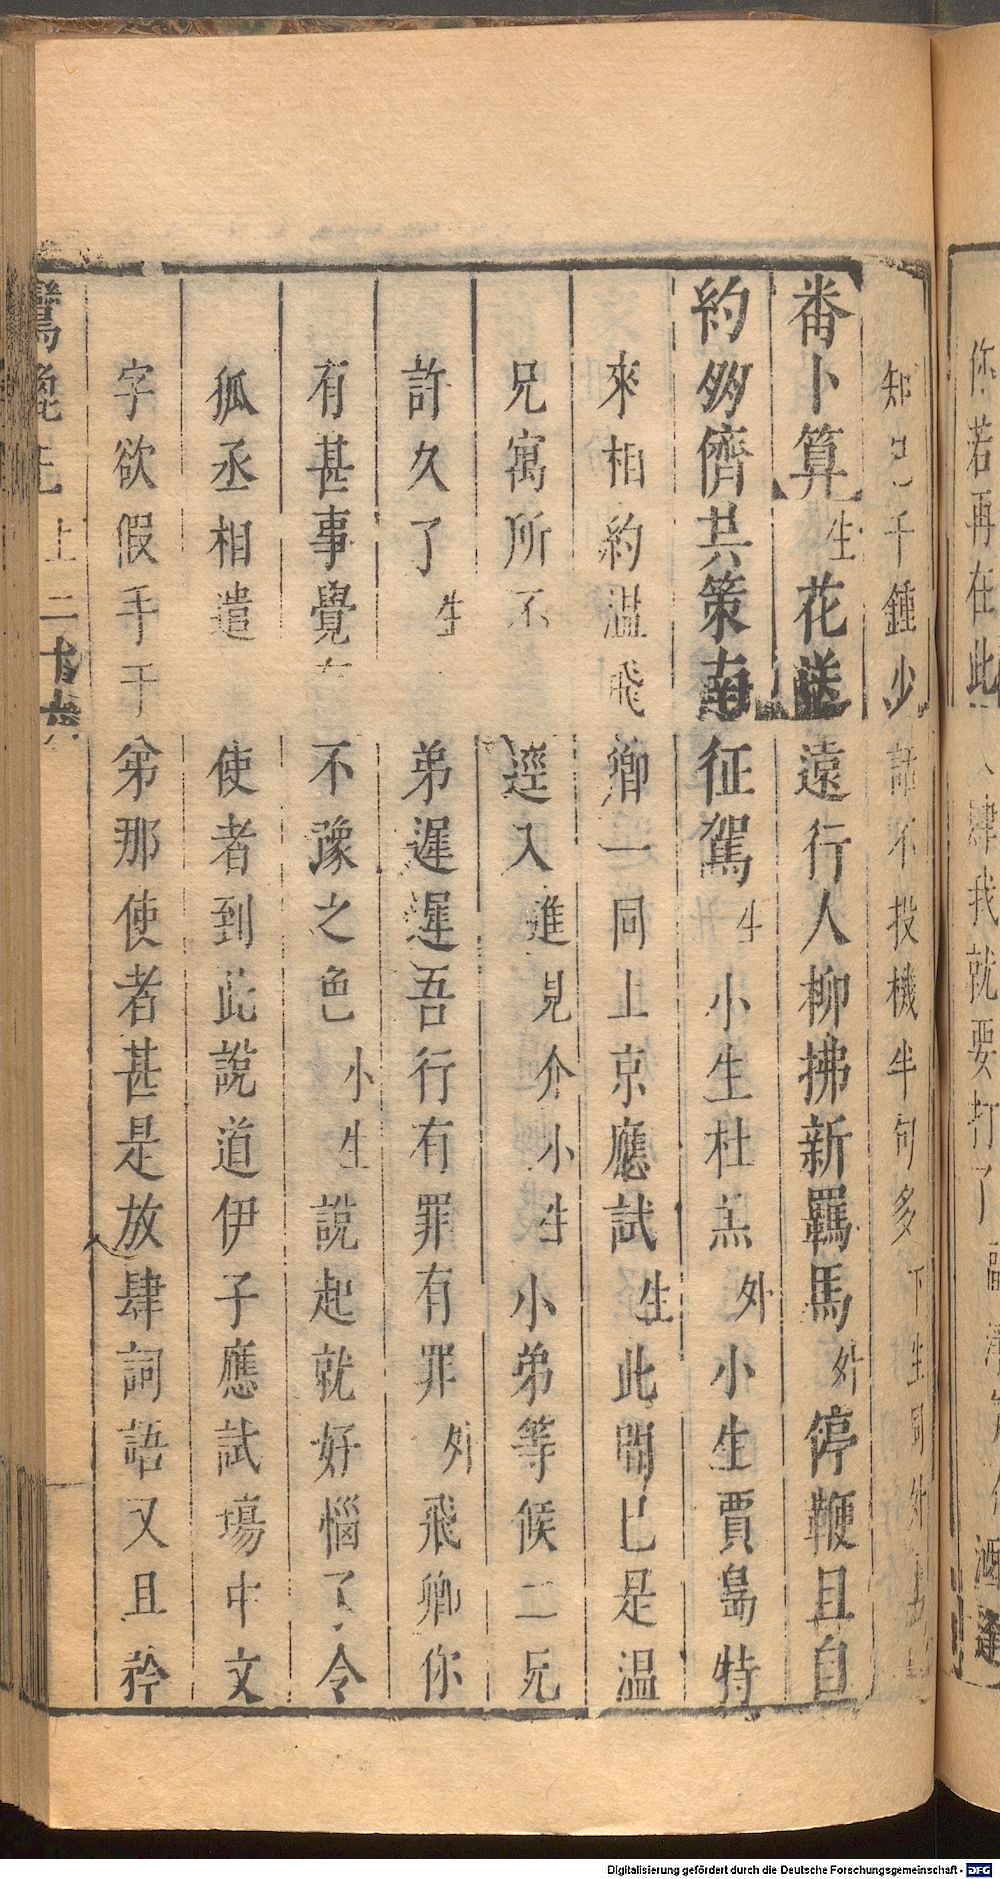 知己千鍾少話不投機半句多下生同外
番卜算生花送遠行人柳拂新羈馬外停鞭且自
約多儕共策南征駕生小生杜羔外小生賈島特
來相約溫飛卿一同上京應試生此間已是溫
兄寓所不逕入進見介小生小弟等候二兄
許久了生弟遲遲吾行有罪有罪外飛卿你
有甚事覺有不豫之色小生說起就好惱了令
狐丞相遣使者到此說道伊子應試場中文
字欲假手于弟那使者甚是放肆詞語又且矜
鸞鎞記上二十六
你若再在此 肆我就要打了
Digitalisierung gefördert durch die Deutsche Forschungsgemeinschaft - DFG